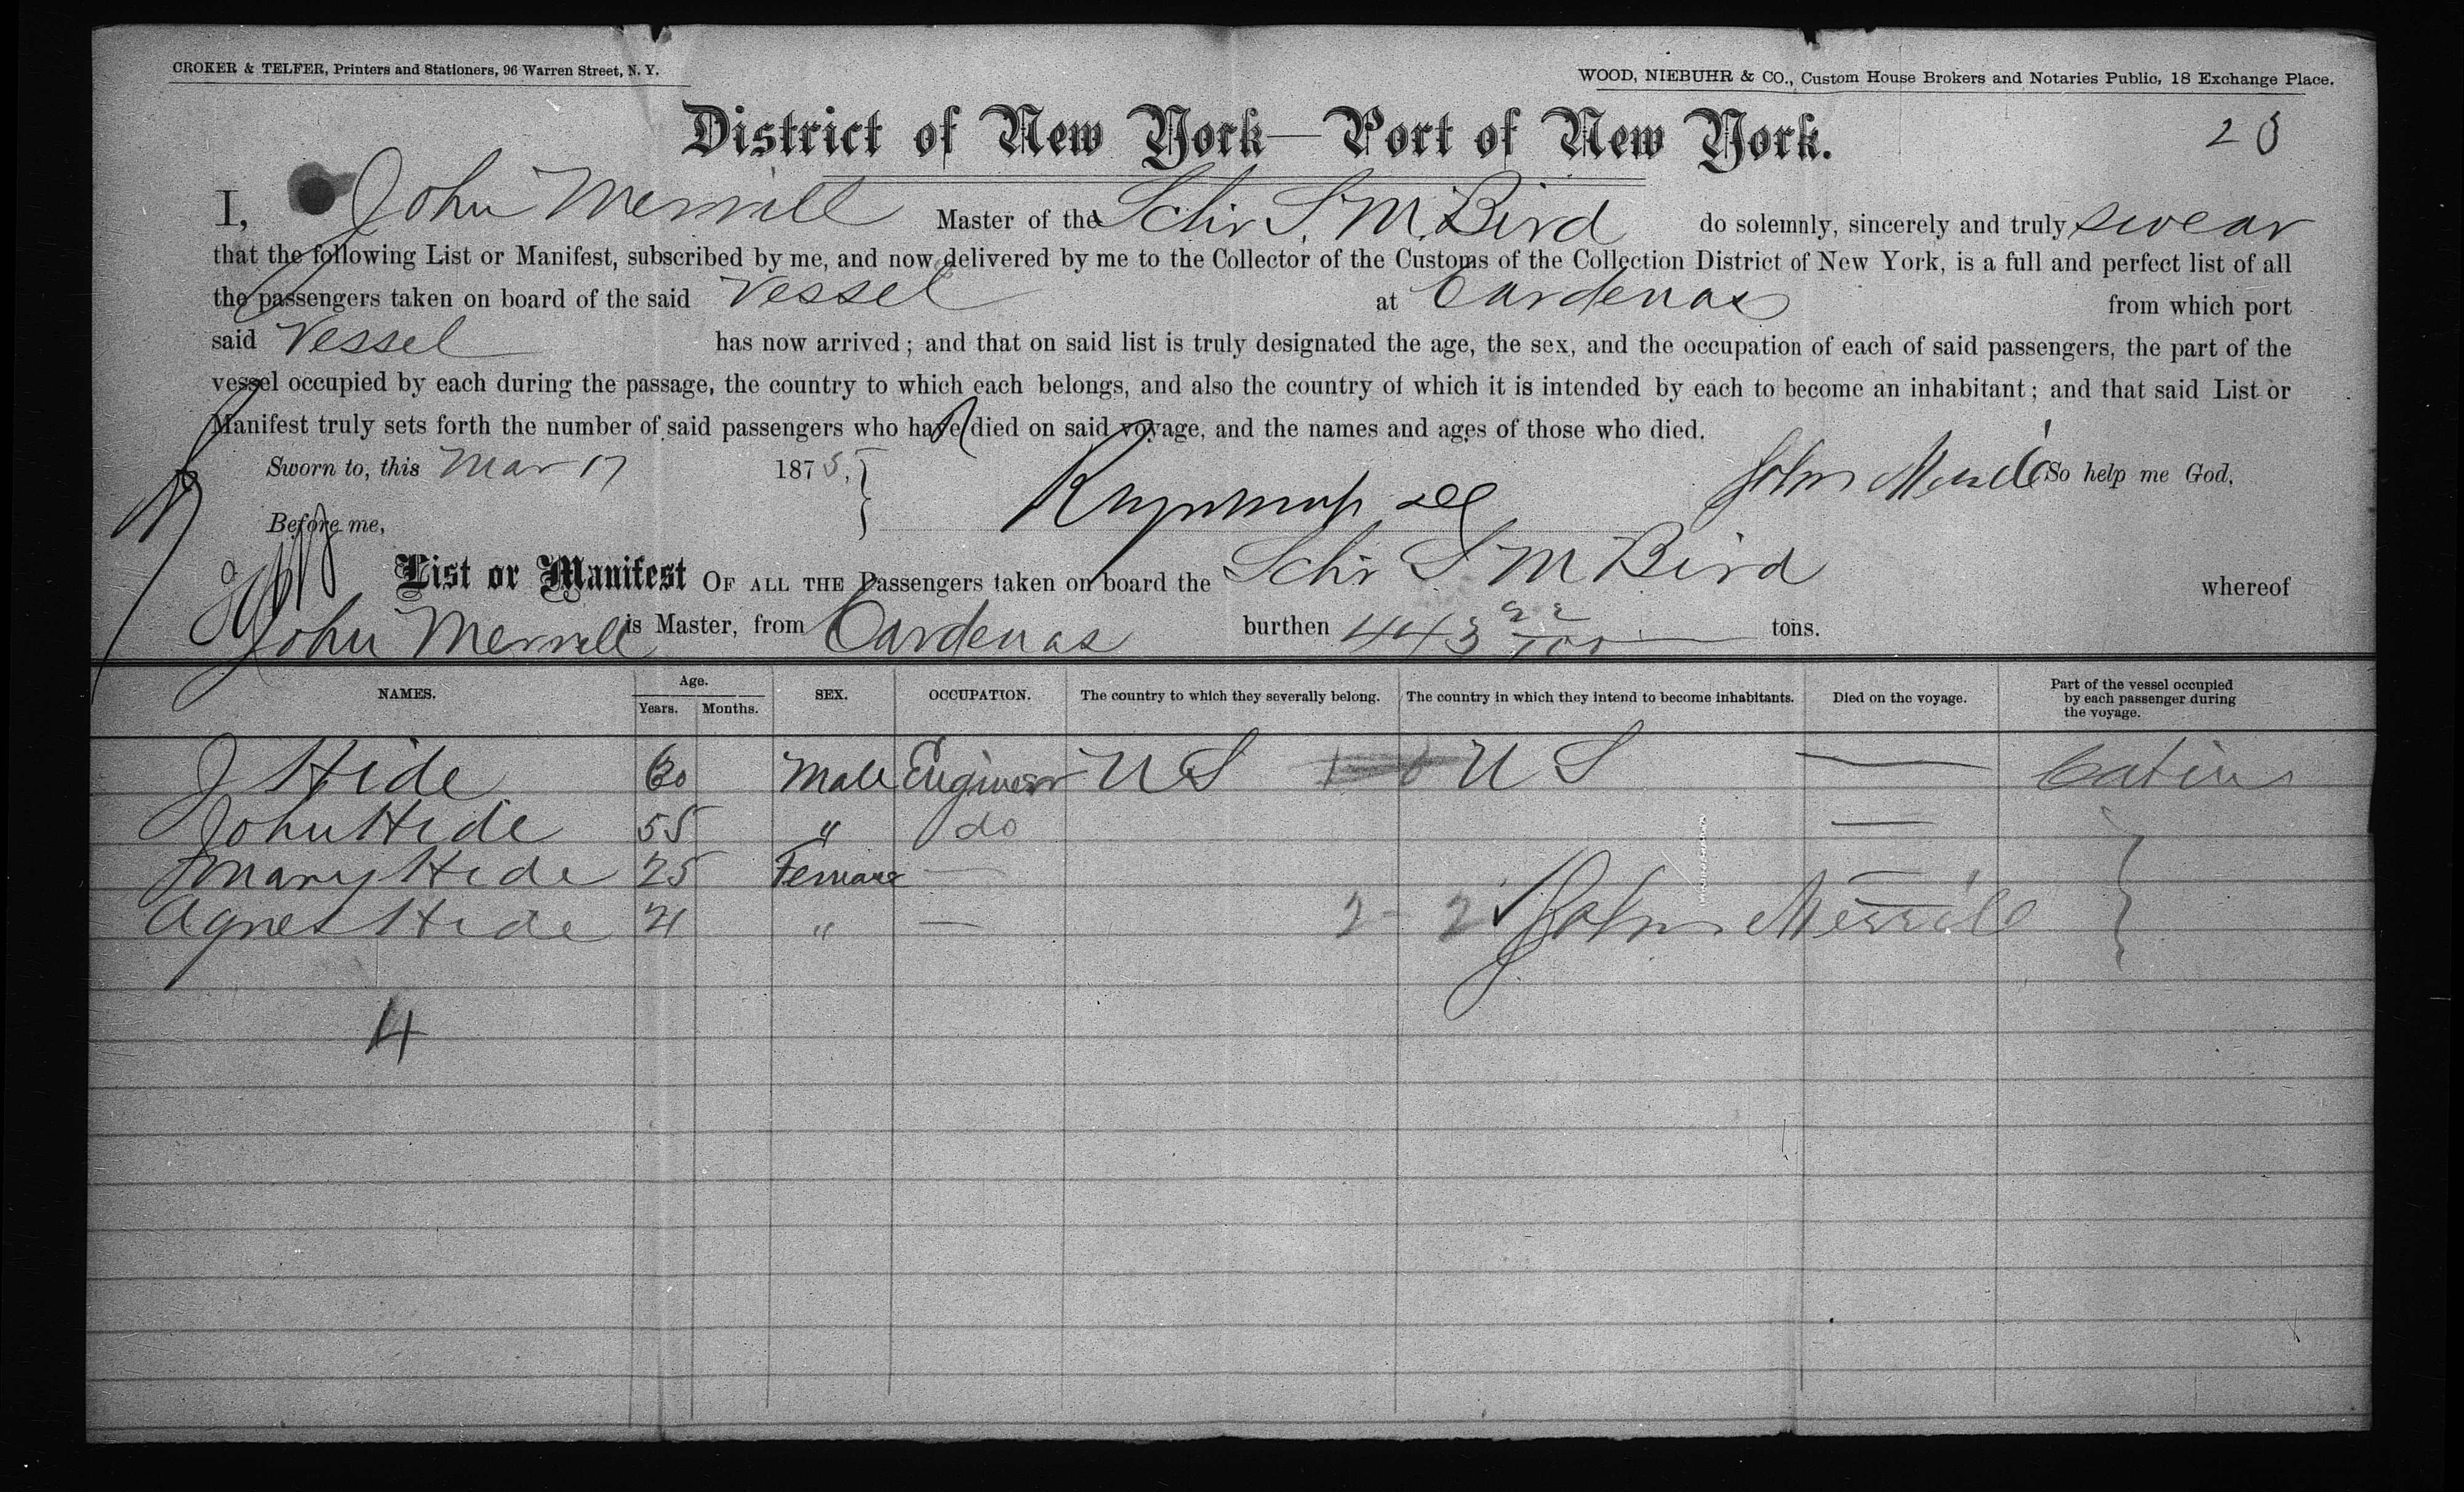 CROKER & TELFER, Printers and Stationers, 96 Warren Street, N. Y.
WOOD, NIEBUHR & CO., Custom House Brokers and Notaries Public, 18 Exchange Place.
District of New York—Port of New York.
I, John Merrill Master of the Schr S. M. Bird do solemnly, sincerely and truly swear
that the following List or Manifest, subscribed by me, and now delivered by me to the Collector of the Customs of the Collection District of New York, is a full and perfect list of all
the passengers taken on board of the said Vessel at Cardenas from which port
said Vessel has now arrived; and that on said list is truly designated the age, the sex, and the occupation of each of said passengers, the part of the
vessel occupied by each during the passage, the country to which each belongs, and also the country of which it is intended by each to become an inhabitant; and that said List or
Manifest truly sets forth the number of said passengers who have died on said voyage, and the names and ages of those who died.
Sworn to, this Mar 17 1875, John Merrill So help me God,
Before me,
List or Manifest OF ALL THE Passengers taken on board the Schr S M Bird whereof
John Merrill is Master, from Cardenas burthen 443 22/100 tons.
NAMES. Age. Years. Months. SEX. OCCUPATION. The country to which they severally belong. The country in which they intend to become inhabitants. Died on the voyage. Part of the vessel occupied by each passenger during the voyage.
J Hide 60 Male Engineer U S U S — Cabin
John Hide 55 " do —
Mary Hide 25 Female — —
Agnes Hide 21 " — 2 - 2 John Merrill
4